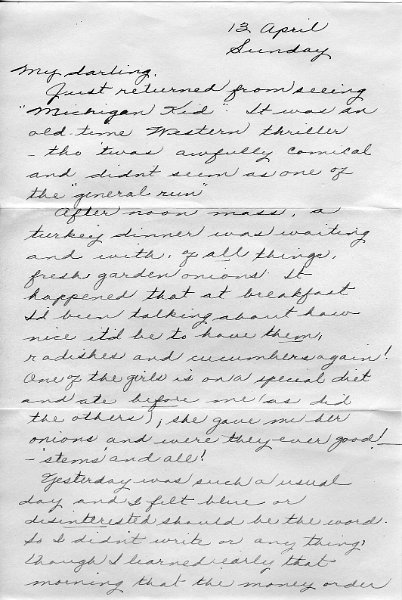 13 April
Sunday
My darling,
Just returned from seeing
"Michigan Kid". It was an
old time Western thriller
- tho 'twas awfully comical
and didn't seem as one of
the "general run"
After noon mass, a
turkey dinner was waiting
and with, of all things,
fresh garden onions. It
happened that at breakfast
I'd been talking about how
nice it'd be to have them,
radishes and cucumbers again!
One of the girls is on a special diet
and ate before me (as did
the others); she gave me her
onions and were they ever good! -
- 'stems' and all!
Yesterday was such a usual
day and I felt blue or
disinterested should be the word.
So I didn't write or any thing,
though I learned early that
morning that the money order